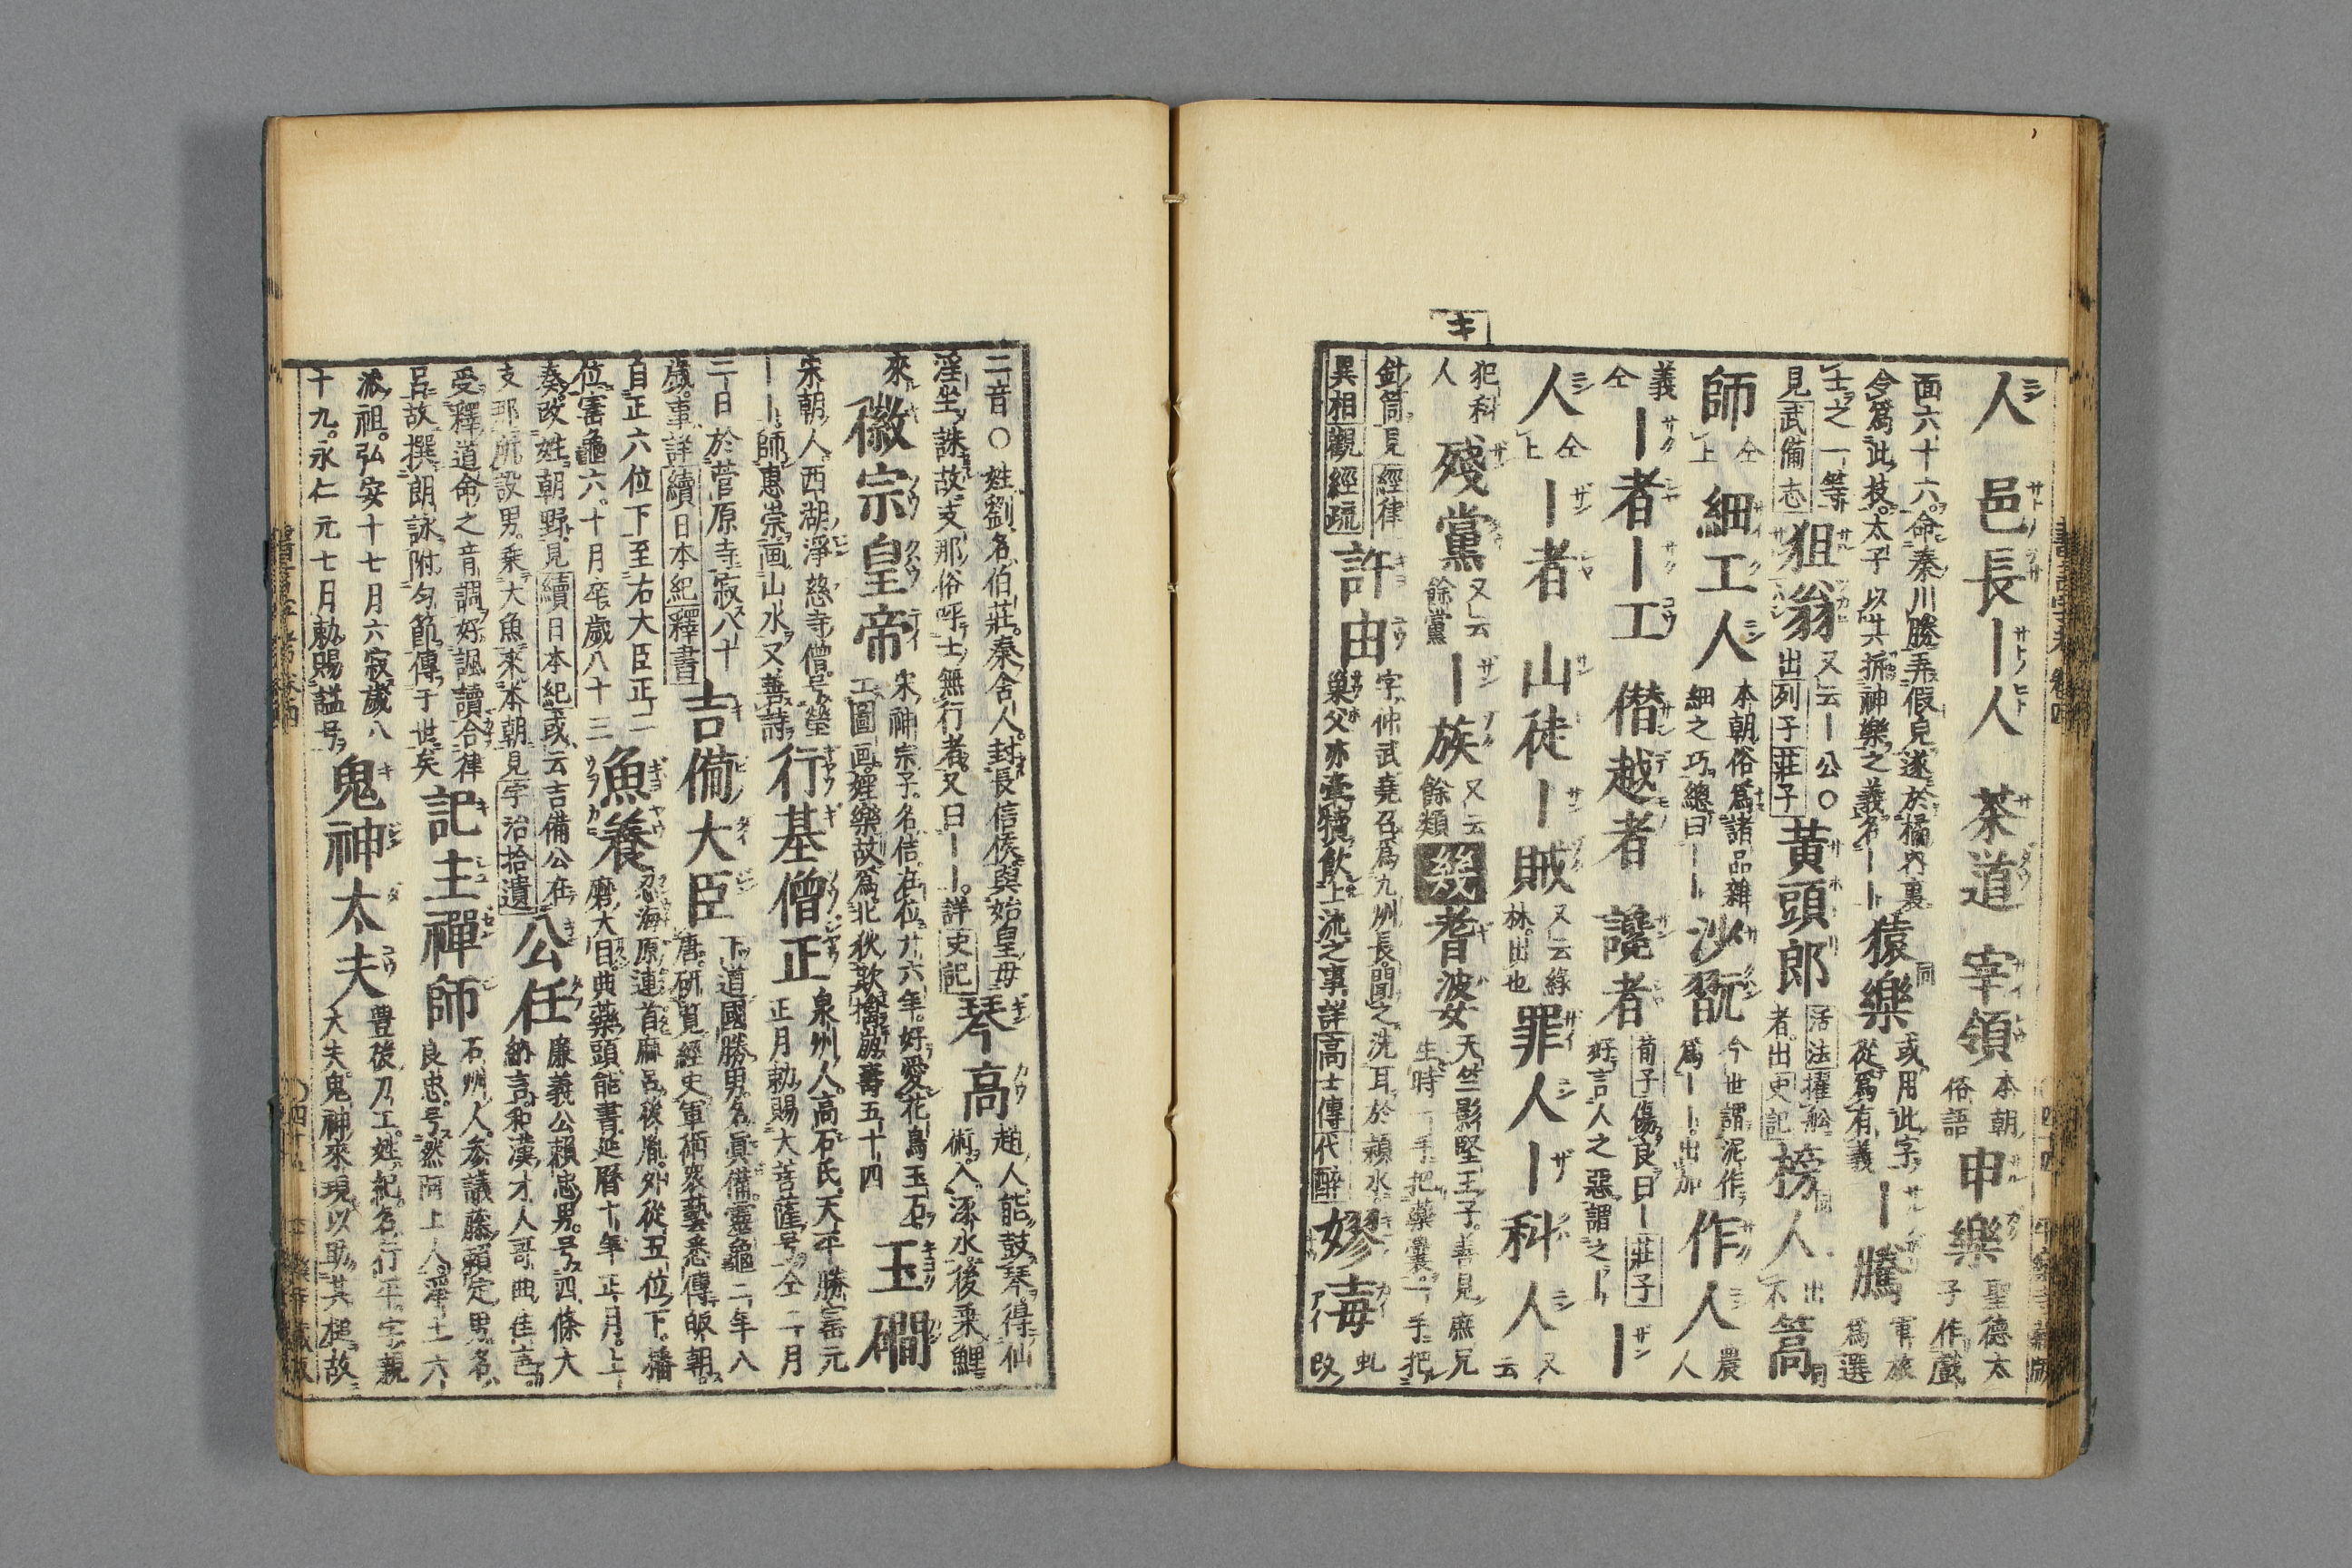 人 邑長 ｜人 茶道 宰領 本朝俗語 申樂 聖德太子作戲
面六十六命秦川勝弄假皃遂於橘內裏
令爲此技太子以其拆神樂之義名｜｜ 猿樂 同或用此字從爲有義 ｜騰 軍旅爲選
士之一等見武備志 狙翁 又云｜公〇出列子莊子 黃頭郎 活法擢舩者出史記 榜人 同出不 篙 同
師 仝上 細工人 本朝俗爲諸品雜細之巧總曰｜｜ 沙翫 今世謂泥作爲｜｜出加 作人 農人
義仝 ｜者 ｜工 僭越者 讒者 荀子傷良曰｜莊子好言人之惡謂之｜ ｜
人 仝上 ｜者 山徒 ｜賊 又云綠林出也 罪人 ｜科人 又云
犯科人 殘黨 又云餘黨 ｜族 又云餘類
キ
幾 耆波女 天竺影堅王子善見庶兄生時一手把藥囊一手把
針筒見經律異相觀經疏 許由 字仲武堯召爲九州長聞之洗耳於潁水巢父亦牽犢飲上流之事詳高士傳代醉 嫪毐
二音〇姓劉名伯莊秦舍人封長信侯與始皇母
淫坐誅故支那俗呼士無行者又曰｜｜詳史記 琴高 趙人能鼓琴得仙術入涿水後乘鯉
來 徽宗皇帝 宋神宗子名佶在位廿六年好愛花鳥玉石工圖画婬樂故爲北狄欺擒崩壽五十四 玉磵
宋朝人西湖淨慈寺僧号瑩
｜｜師惠崇画山水又善詩 行基僧正 泉州人高石氏天平勝宝元正月勅賜大菩薩号仝二月
二日於菅原寺寂八十
歲事詳續日本紀釋書 吉備大臣 下道國勝男名眞備靈龜二年入唐研覧經史軍術衆藝悉傳皈朝
自正六位下至右大臣正二
位宝龜六十月卒歲八十三 魚養 忍海原連首麻呂後胤外從五位下播磨大目典藥頭能書延曆十年正月上
奏改姓朝野見續日本紀或云吉備公在
支那所設男乘大魚來本朝見宇治拾遺 公任 廉義公賴忠男号四條大納言和漢才人哥曲佳言
受釋道命之音調好諷讀合律
呂故撰朗詠附匀節傳于世矣 記主禪師 石州人參議藤賴定男名良忠号然阿上人淨土六
派祖弘安十七月六寂歲八
十九永仁元七月勅賜諡号 鬼神太夫 豊後刀工姓紀名行平字親大夫鬼神來現以助其槌故